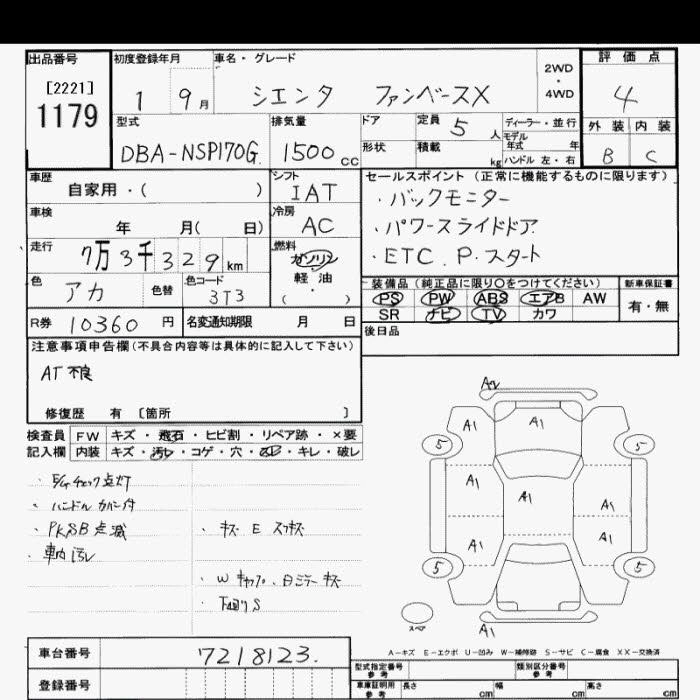 出品番号
[2221]
1179
初度登録年月
1 9月
車名・グレード
シエンタ ファンベースX
2WD
・
4WD
評価点
4
外装 内装
B C
型式
DBA-NSP170G
排気量
1500cc
ドア
形状
定員 5人
積載 kg
ディーラー・並行
モデル
年式 年
ハンドル 左・右
車歴
自家用・( )
シフト
IAT
セールスポイント(正常に機能するものに限ります)
・バックモニター
・パワースライドドア
・ETC. P.スタート
車検
年 月( 日)
冷房
AC
走行
7万3千329km
燃料
ガソリン
軽・油
・
( )
色
アカ
色替
色コード
3T3
装備品(純正品に限り○をつけてください)
PS PW ABS エアB AW
SR ナビ TV カワ
新車保証書
有・無
R券 10360円
名変通知期限 月 日
後日品
注意事項申告欄(不具合内容等は具体的に記入して下さい)
AT不良
修復歴 有 [箇所 ]
検査員
記入欄
FW キズ・飛石・ヒビ割・リペア跡・×要
内装 キズ・汚レ・コゲ・穴・スレ・キレ・破レ
・E/Gチェック点灯
・ハンドルカバー付
・PKSB点滅
・車内汚レ
・キズ E スリキズ
・Wキャップ・ミラーキズ
・下廻りS
A2
A1
A1
5
5
A1
A1
A1
A1
A1
5
5
スペア
A1
A-キズ E-エクボ U-凹み W-補修跡 S-サビ C-腐食 XX-交換済
車台番号 7218123.
登録番号
型式指定番号
参考
類別区分番号
参考
車庫証明用
参考
長さ cm
幅 cm
高さ cm